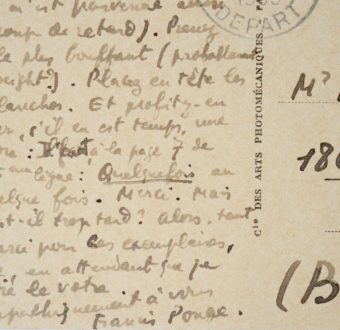 m'est parvenue
coup de retard). Prenez
le plus bouffant (probablement
weight?). Placez en tête les
blanches. Et profitez-en
s'il en est temps, une
à la page 7 de
ligne : Quelquefois au
quelque fois. Merci. Mais
est-il trop tard? Alors, tant
merci pour ces exemplaires,
en attendant que je
le votre
sympathiquement à vous
Francis Ponge.
DEPART
Cie DES ARTS PHOTOMÉCANIQUES
M
18
(B